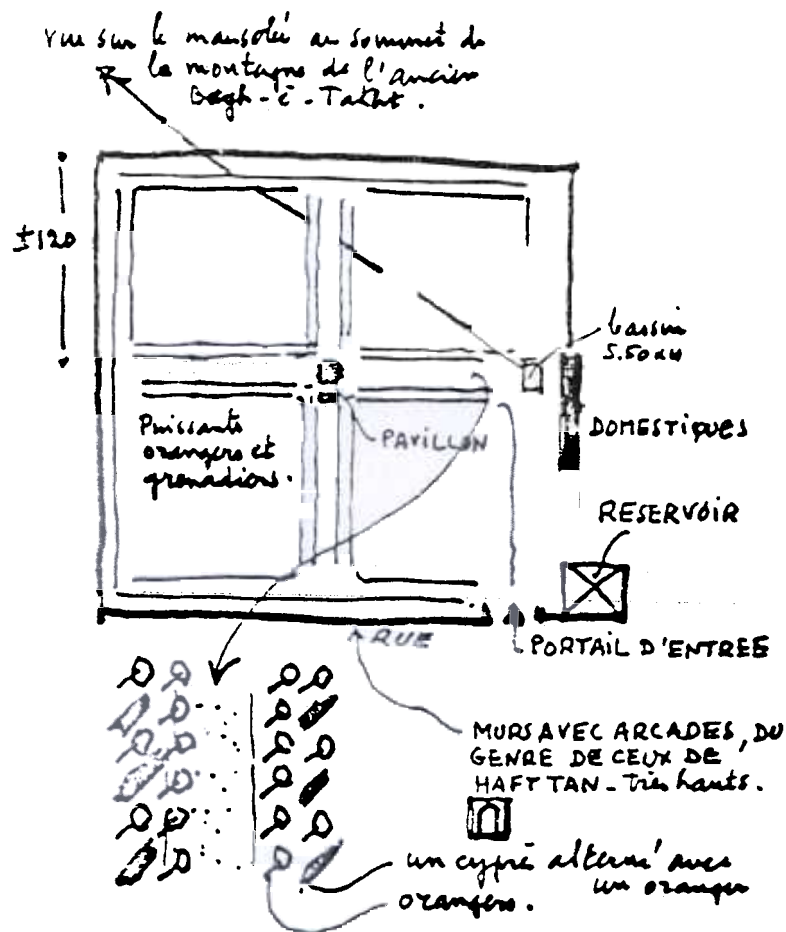 vue sur le mausolé au sommet de
la montagne de l'ancien
Bagh-é-Takht.
±120
bassin
5.50 x 4
Puissants
orangers et
grenadiers.
PAVILLON
DOMESTIQUES
RESERVOIR
RUE
PORTAIL D'ENTREE
MURS AVEC ARCADES, DU
GENRE DE CEUX DE
HAFT TAN - Très hauts.
un cyprè alterné avec
un oranger
orangers.